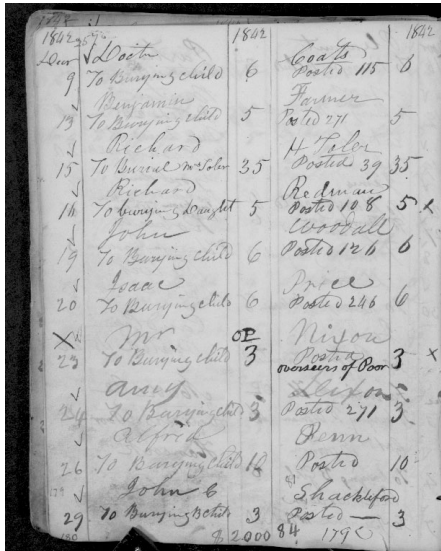 1842 1842 1842
Doctr Coats
9 To Burying child 6 Posted 115 6
Benjamin Farmer
13 To Burying child 5 Posted 271 5
Richard H Toler
15 To Burial Mr Toler 35 Posted 39 35
Richard Redman
16 To burying Daught 5 Posted 108 5 x
John Woodall
19 To Burying child 6 Posted 126 6
Isaac Price
20 To Burying child 6 Posted 246 6
X Mr OP Nixon
23 To Burying child 3 Posted 3 x
overseers of Poor
Amy Nixon
24 To Burying child 3 Posted 271 3
Alfred Penn
26 To Burying child 10 Posted 10
John C Shackleford
29 To Burying child 3 Posted — 3
$ 2000 84